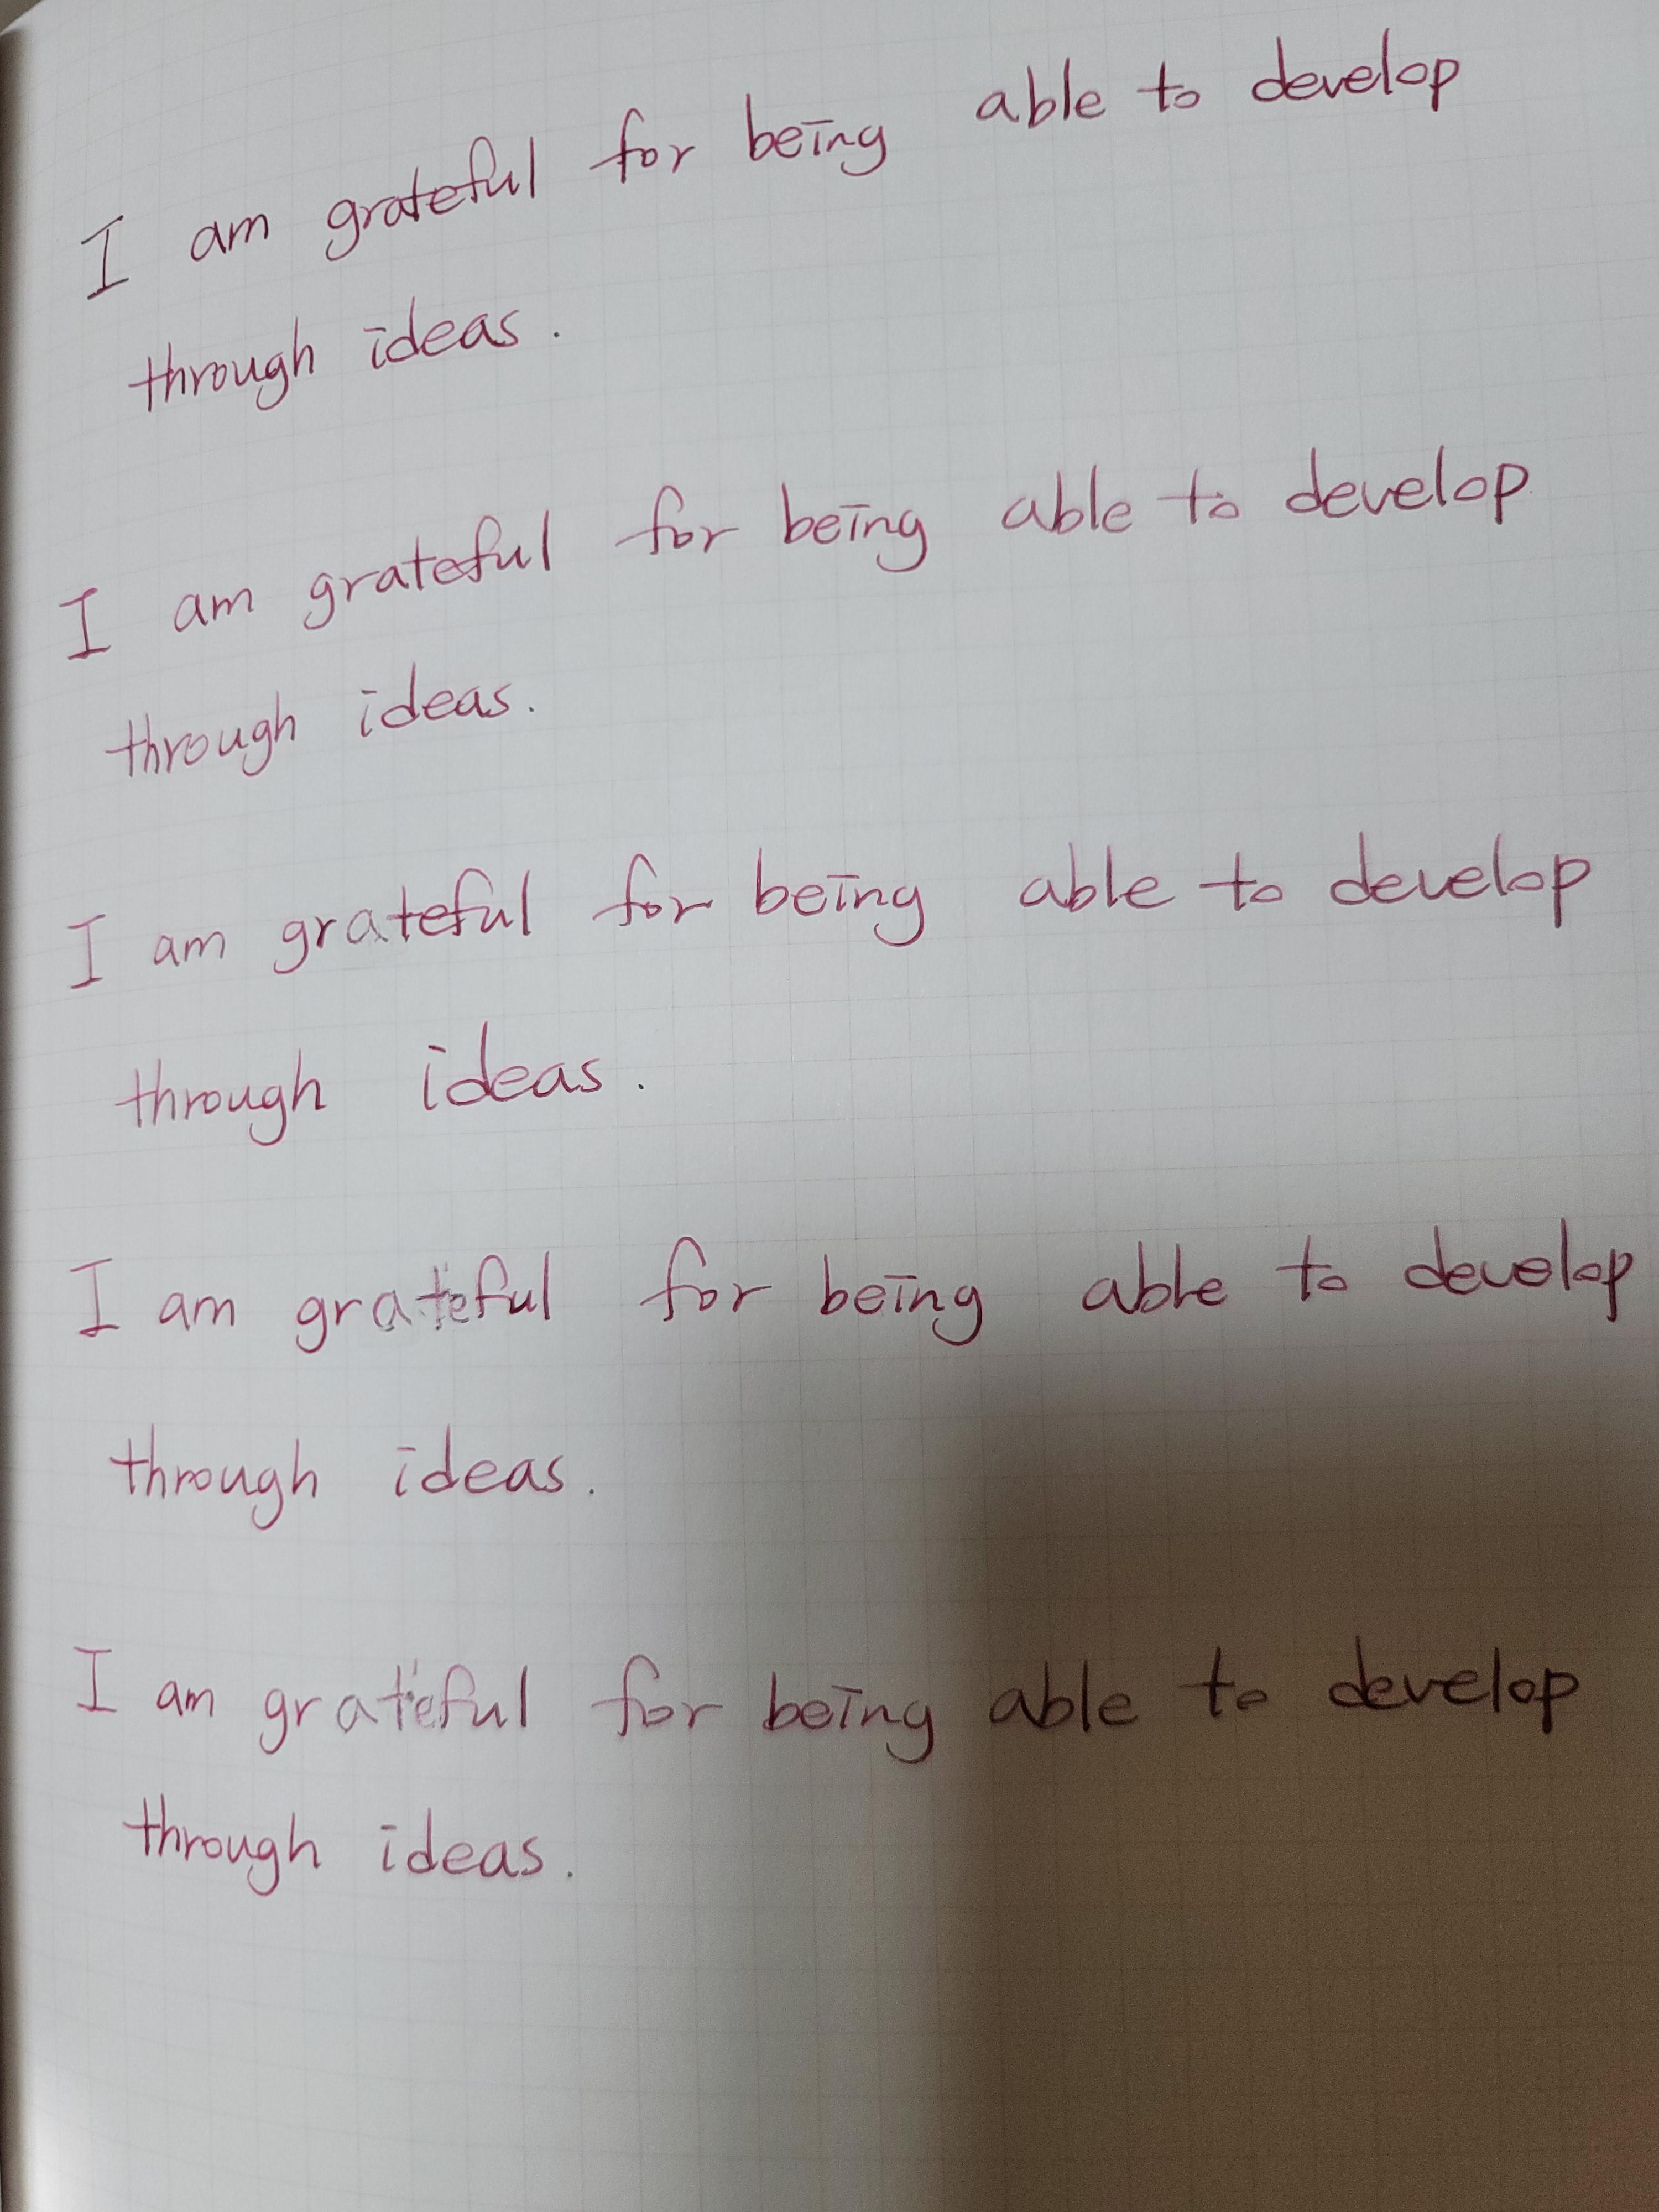 I am grateful for being able to develop
through ideas.
I am grateful for being able to develop
through ideas.
I am grateful for being able to develop
through ideas.
I am grateful for being able to develop
through ideas.
I am grateful for being able to develop
through ideas.